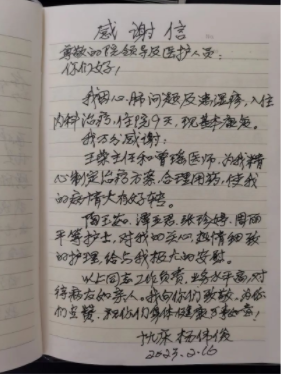 感谢信
尊敬的院领导及医护人员:
你们好!
我因心肺问题及患湿疹,入住
内科治疗,住院9天,现基本康复。
我万分感谢:
王荣主任和曹璐医师,为我精
心制定治疗方案,合理用药,使我
的病情大有好转。
陶玉茹、谭亚君、张珍婷、周丽
平等护士,对我的关心,热情细致
的护理,给与我极大的安慰。
以上同志工作负责,业务水平高,对
待病友如亲人。我向你们致敬,为你
们点赞,祝你们身体健康万事如意!
杨伟俊
2023.2.16